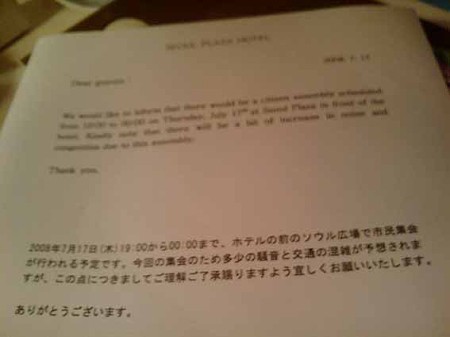 PLAZA HOTEL
2008. 7. 17
Dear guests,
We would like to inform that there would be a citizen assembly scheduled
from 19:00 to 00:00 on Thursday, July 17th at Seoul Plaza in front of the
hotel. Kindly note that there will be a bit of increase in noise and
congestion due to this assembly.
Thank you,
2008年7月17日(木)19:00から00:00まで、ホテルの前のソウル広場で市民集会
が行われる予定です。今回の集会のため多少の騒音と交通の混雑が予想されま
すが、この点につきましてご理解ご了承賜りますよう宜しくお願いいたします。
ありがとうございます。